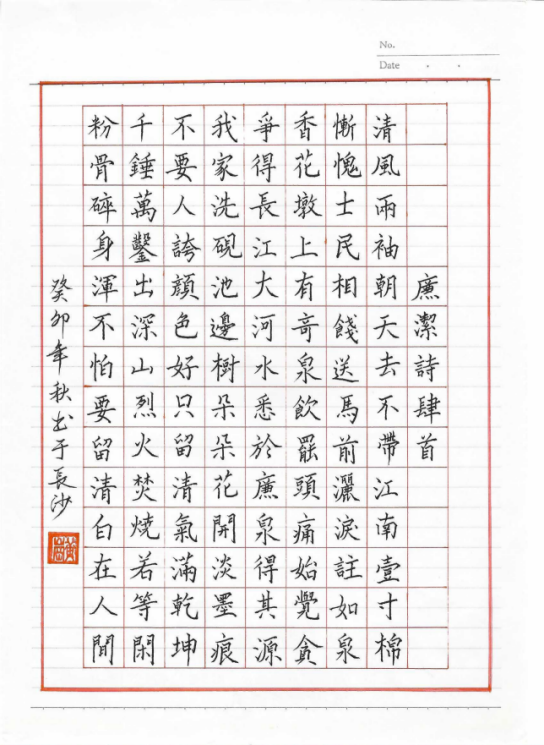 No.
Date
廉潔詩肆首
清風兩袖朝天去不帶江南壹寸棉
慚愧士民相餞送馬前灑淚註如泉
香花墩上有奇泉飲罷頭痛始覺貪
爭得長江大河水悉於廉泉得其源
我家洗硯池邊樹朵朵花開淡墨痕
不要人誇顏色好只留清氣滿乾坤
千錘萬鑿出深山烈火焚燒若等閑
粉骨碎身渾不怕要留清白在人間
癸卯年秋書于長沙